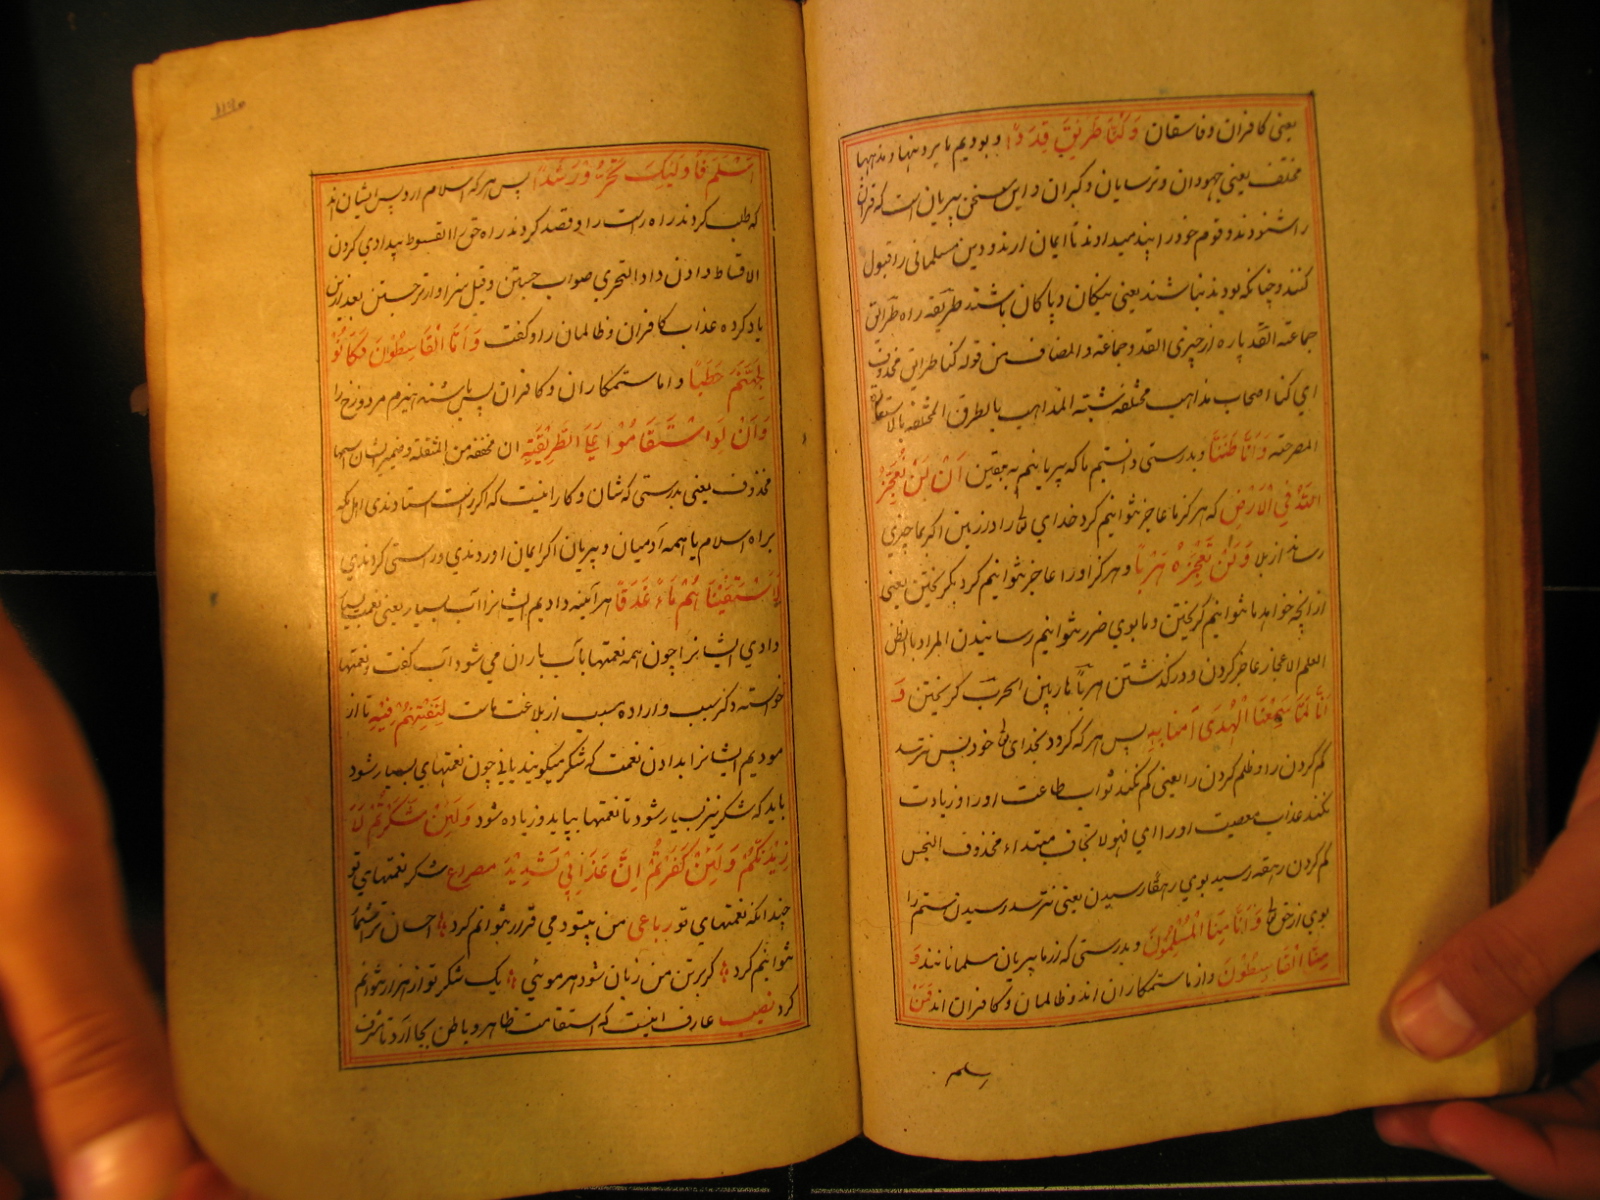 یعنی کافران و فاسقان وَکُنَّا طَرَائِقَ قِدَدًا و بودیم ما بر دینها و مذهبها
مختلف یعنی جهودان و ترسایان و گبران و این سخن پریان است که قرآن
را شنودند و قوم خود را پند میدادند تا ایمان ارند و دین مسلمانی را قبول
کنند و چنانکه بودند نباشند یعنی نیکان و پاکان باشند طریقه راه طرایق
جماعته القد پاره از چیزی القدد جماعته و المضاف من قوله کنا طرایق محذوف
ای کنا اصحاب مذاهب مختلفه شبته المذاهب بالطرق المختلفه بالاستعارة
المصرحته وَاَنَّا ظَنَنَّا و بدرستی دانستیم ما که پریانیم به یقین اَنْ لَنْ نُعْجِزَ
اللّٰهَ فِي الْاَرْضِ که هرگز ما عاجز نتوانیم کرد خدای تع را در زمین اگر ما چیزی
رساند از بلا وَلَنْ نُعْجِزَهُ هَرَبًا و هرگز او را عاجز نتوانیم کرد بگریختن یعنی
از انچه خواهد ما نتوانیم گریختن و ما بوی ضرر نتوانیم رسانیدن المراد بالظن
العلم الاعجاز عاجز کردن و درگذشتن هربًا هاربین الهرب گریختن وَ
اَنَّا لَمَّا سَمِعْنَا الْهُدَى آمَنَّا بِهِ پس هر که گرود بخدای تع خود پس نترسد
کم کردن را و ظلم کردن را یعنی کم نکند ثواب طاعت او را و زیادت
نکند عذاب معصیت او را ای فهو لا یخاف مبتداء محذوف البخس
کم کردن رهقه رسید بوی رهقا رسیدن یعنی نترسد رسیدن ستم را
بوی از حق تع وَاَنَّا مِنَّا الْمُسْلِمُونَ و بدرستی که از ما پریان مسلمانانند وَ
مِنَّا الْقَاسِطُونَ و از ما ستمکاران اند و ظالمان و کافران اند فَمَنْ
اسلم
اَسْلَمَ فَاُولٰئِكَ تَحَرَّوْا رَشَدًا پس هر که اسلام ارد پس ایشان اند
که طلب کردند راه راست را و قصد کردند راه حق را القسوط بیدادی کردن
الاقساط دادن داد التحری صواب جستن و قیل سزاوارتر جستن بعد ازین
یاد کرده عذاب کافران و ظالمان را و گفت وَاَمَّا الْقَاسِطُونَ فَكَانُوْا
لِجَهَنَّمَ حَطَبًا و اما ستمکاران و کافران پس باشند هیزم مر دوزخ را
وَاَنْ لَوِ اسْتَقَامُوْا عَلَى الطَّرِيقَةِ ان مخففه من المثقله و ضمیر الشان اسمها
محذوف یعنی بدرستی که شان و کار اینست که اگر راست استادندی اهل مکه
براه اسلام یا همه آدمیان و پریان اگر ایمان اوردندی و راستی کردندی
لَاَسْقَيْنَاهُمْ مَاءً غَدَقًا هر آینه دادیم ایشانرا آب بسیار یعنی نعمت بسیار
دادی ایشانرا چون همه نعمتها بآب باران می شود آب گفت و نعمتها
خواسته ذکر سبب و اراده مسبب از بلاغت هاست لِنَفْتِنَهُمْ فِيْهِ تا از
مودیم ایشانرا بدادن نعمت که شکر میگویند یا نی چون نعمتهای بسیار شود
باید که شکر نیز بسیار شود تا نعمتها بپاید و زیاده شود وَلَئِنْ شَكَرْتُمْ لَاَ
زِيْدَنَّكُمْ وَلَئِنْ كَفَرْتُمْ اِنَّ عَذَابِيْ لَشَدِيْدٌ مصراع شکر نعمتهای تو
چندانکه نعمتهای تو رباعی من بیتو دمی قرار نتوانم کرد احسان ترا شمار
نتوانم کرد گر بر تن من زبان شود هر موئی یک شکر تو از هزار نتوانم
کرد نصیب عارف اینست که استقامت ظاهر و باطن بجا آرد تا مشرف